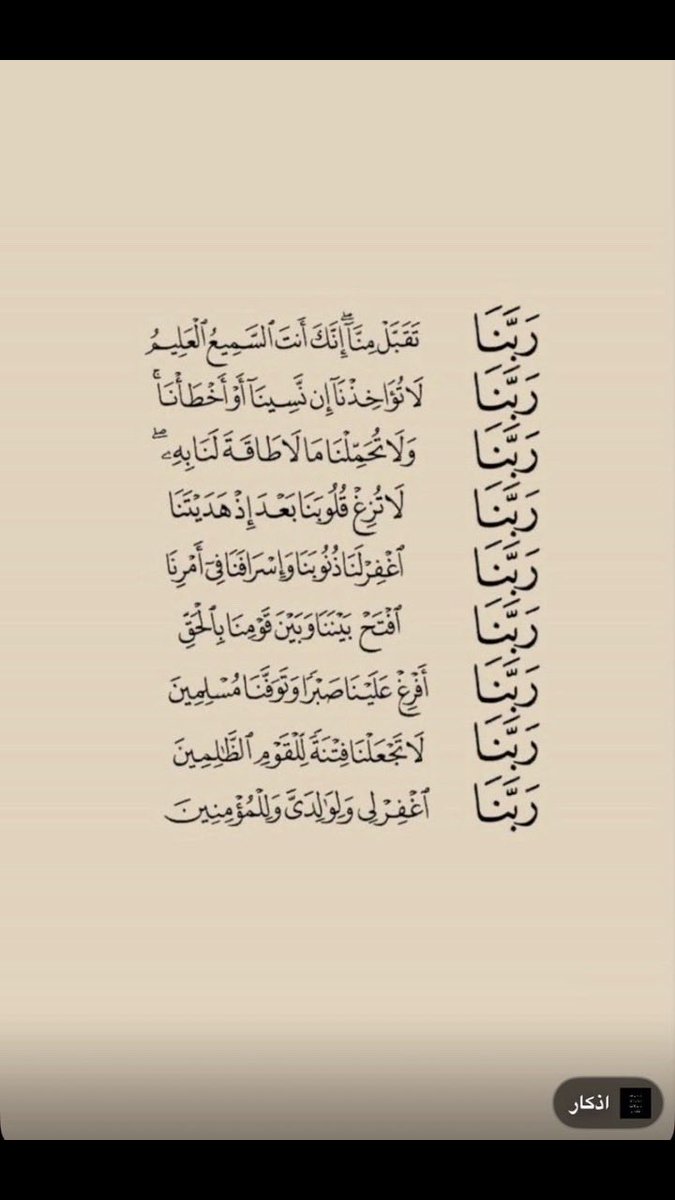 رَبَّنَا تَقَبَّلْ مِنَّآ ۖ إِنَّكَ أَنتَ ٱلسَّمِيعُ ٱلْعَلِيمُ
رَبَّنَا لَا تُؤَاخِذْنَآ إِن نَّسِينَآ أَوْ أَخْطَأْنَا ۚ
رَبَّنَا وَلَا تُحَمِّلْنَا مَا لَا طَاقَةَ لَنَا بِهِۦ ۖ
رَبَّنَا لَا تُزِغْ قُلُوبَنَا بَعْدَ إِذْ هَدَيْتَنَا
رَبَّنَا ٱغْفِرْ لَنَا ذُنُوبَنَا وَإِسْرَافَنَا فِىٓ أَمْرِنَا
رَبَّنَا ٱفْتَحْ بَيْنَنَا وَبَيْنَ قَوْمِنَا بِٱلْحَقِّ
رَبَّنَا أَفْرِغْ عَلَيْنَا صَبْرًا وَتَوَفَّنَا مُسْلِمِينَ
رَبَّنَا لَا تَجْعَلْنَا فِتْنَةً لِّلْقَوْمِ ٱلظَّٰلِمِينَ
رَبَّنَا ٱغْفِرْ لِى وَلِوَٰلِدَىَّ وَلِلْمُؤْمِنِينَ
اذكار